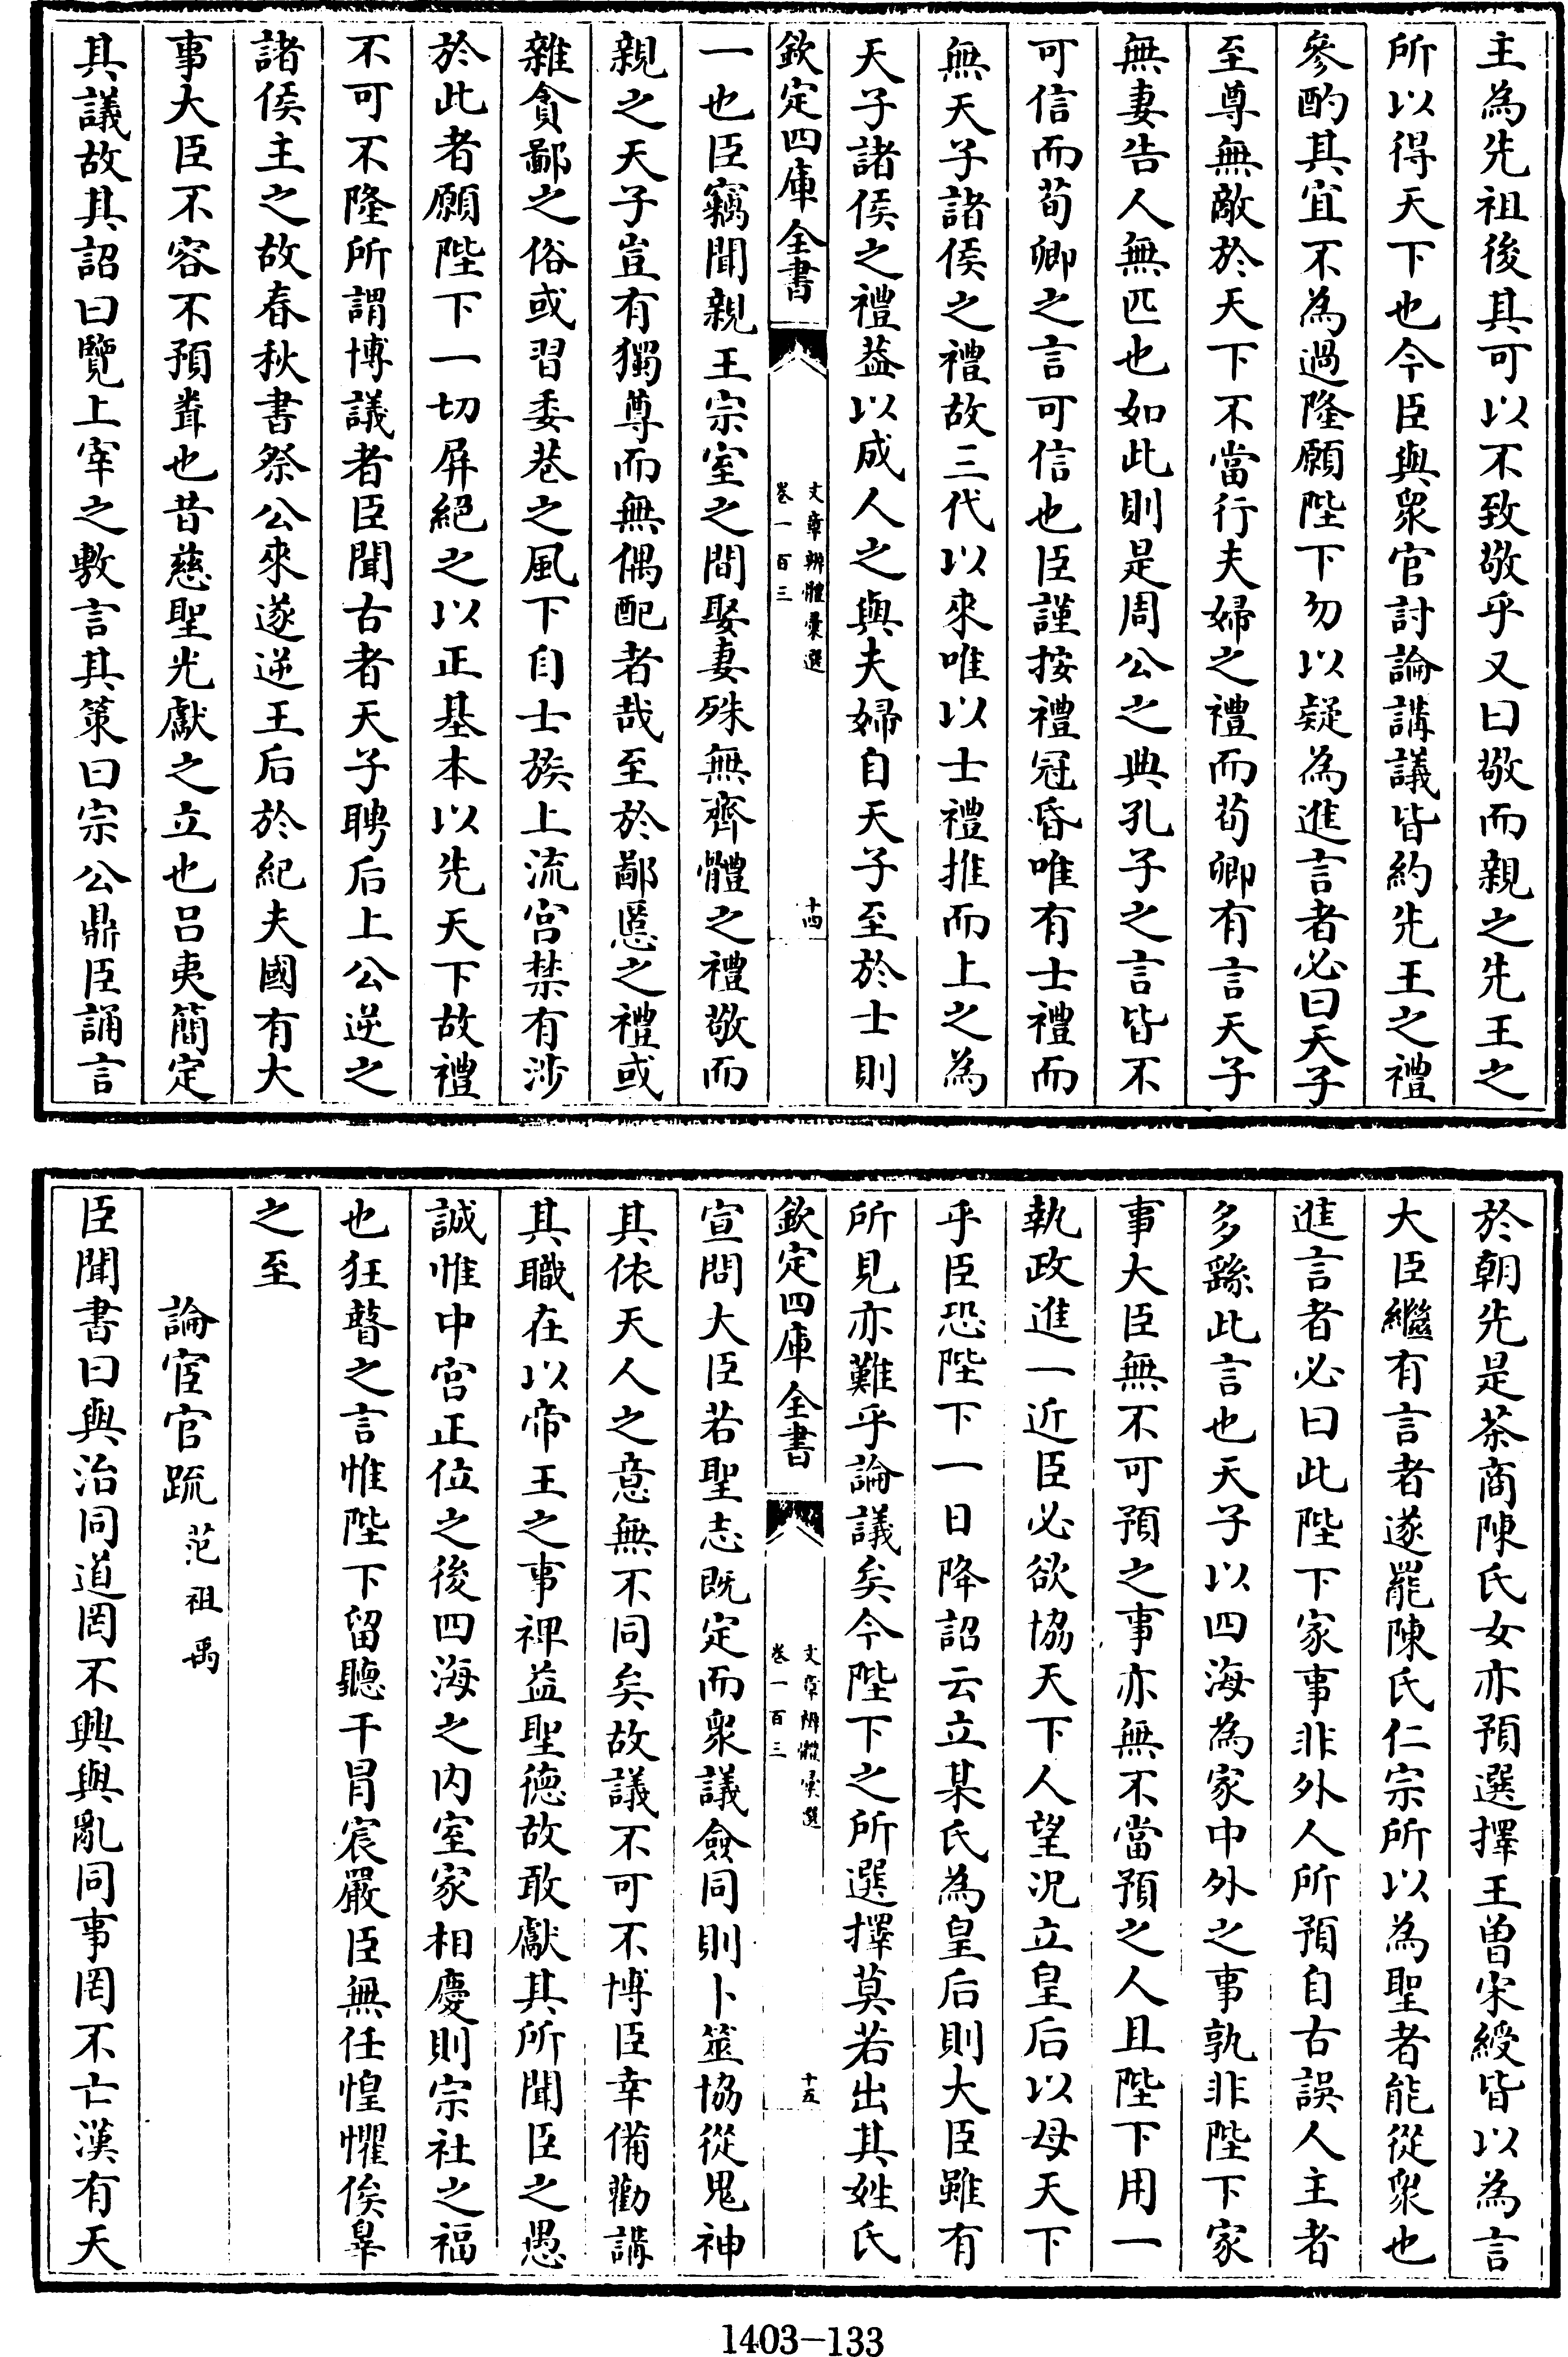 主為先祖後其可以不致敬乎又曰敬而親之先王之
所以得天下也今臣與衆官討論講議皆約先王之禮
參酌其宜不為過隆願陛下勿以疑為進言者必曰天子
至尊無敵於天下不當行夫婦之禮而荀卿有言天子
無妻告人無匹也如此則是周公之典孔子之言皆不
可信而荀卿之言可信也臣謹按禮冠昏唯有士禮而
無天子諸侯之禮故三代以來唯以士禮推而上之為
天子諸侯之禮葢以成人之與夫婦自天子至於士則
欽定四庫全書
文章辨體彙選
卷一百三
十四
一也臣竊聞親王宗室之間娶妻殊無齊體之禮敬而
親之天子豈有獨尊而無偶配者哉至於鄙慝之禮或
雜貪鄙之俗或習委巷之風下自士族上流宫禁有涉
於此者願陛下一切屏絕之以正基本以先天下故禮
不可不隆所謂博議者臣聞古者天子聘后上公逆之
諸侯主之故春秋書祭公來遂逆王后於紀夫國有大
事大臣不容不預聋也昔慈聖光獻之立也吕夷簡定
其議故其詔曰覽上宰之敷言其策曰宗公鼎臣誦言
於朝先是茶商陳氏女亦預選擇王曽宋綬皆以為言
大臣繼有言者遂罷陳氏仁宗所以為聖者能從衆也
進言者必曰此陛下家事非外人所預自古誤人主者
多繇此言也天子以四海為家中外之事孰非陛下家
事大臣無不可預之事亦無不當預之人且陛下用一
執政進一近臣必欲協天下人望况立皇后以母天下
乎臣恐陛下一日降詔云立某氏為皇后則大臣雖有
所見亦難乎論議矣今陛下之所選擇莫若出其姓氏
欽定四庫全書
文章辨體彙選
卷一百三
十五
宣問大臣若聖志既定而衆議僉同則卜筮協從鬼神
其依天人之意無不同矣故議不可不博臣幸備勸講
其職在以帝王之事裨益聖德故敢獻其所聞臣之愚
誠惟中宫正位之後四海之内室家相慶則宗社之福
也狂瞽之言惟陛下留聽干冒宸嚴臣無任惶懼俟辠
之至
論宦官疏 范祖禹
臣聞書曰與治同道罔不興與亂同事罔不亡漢有天
1403-133